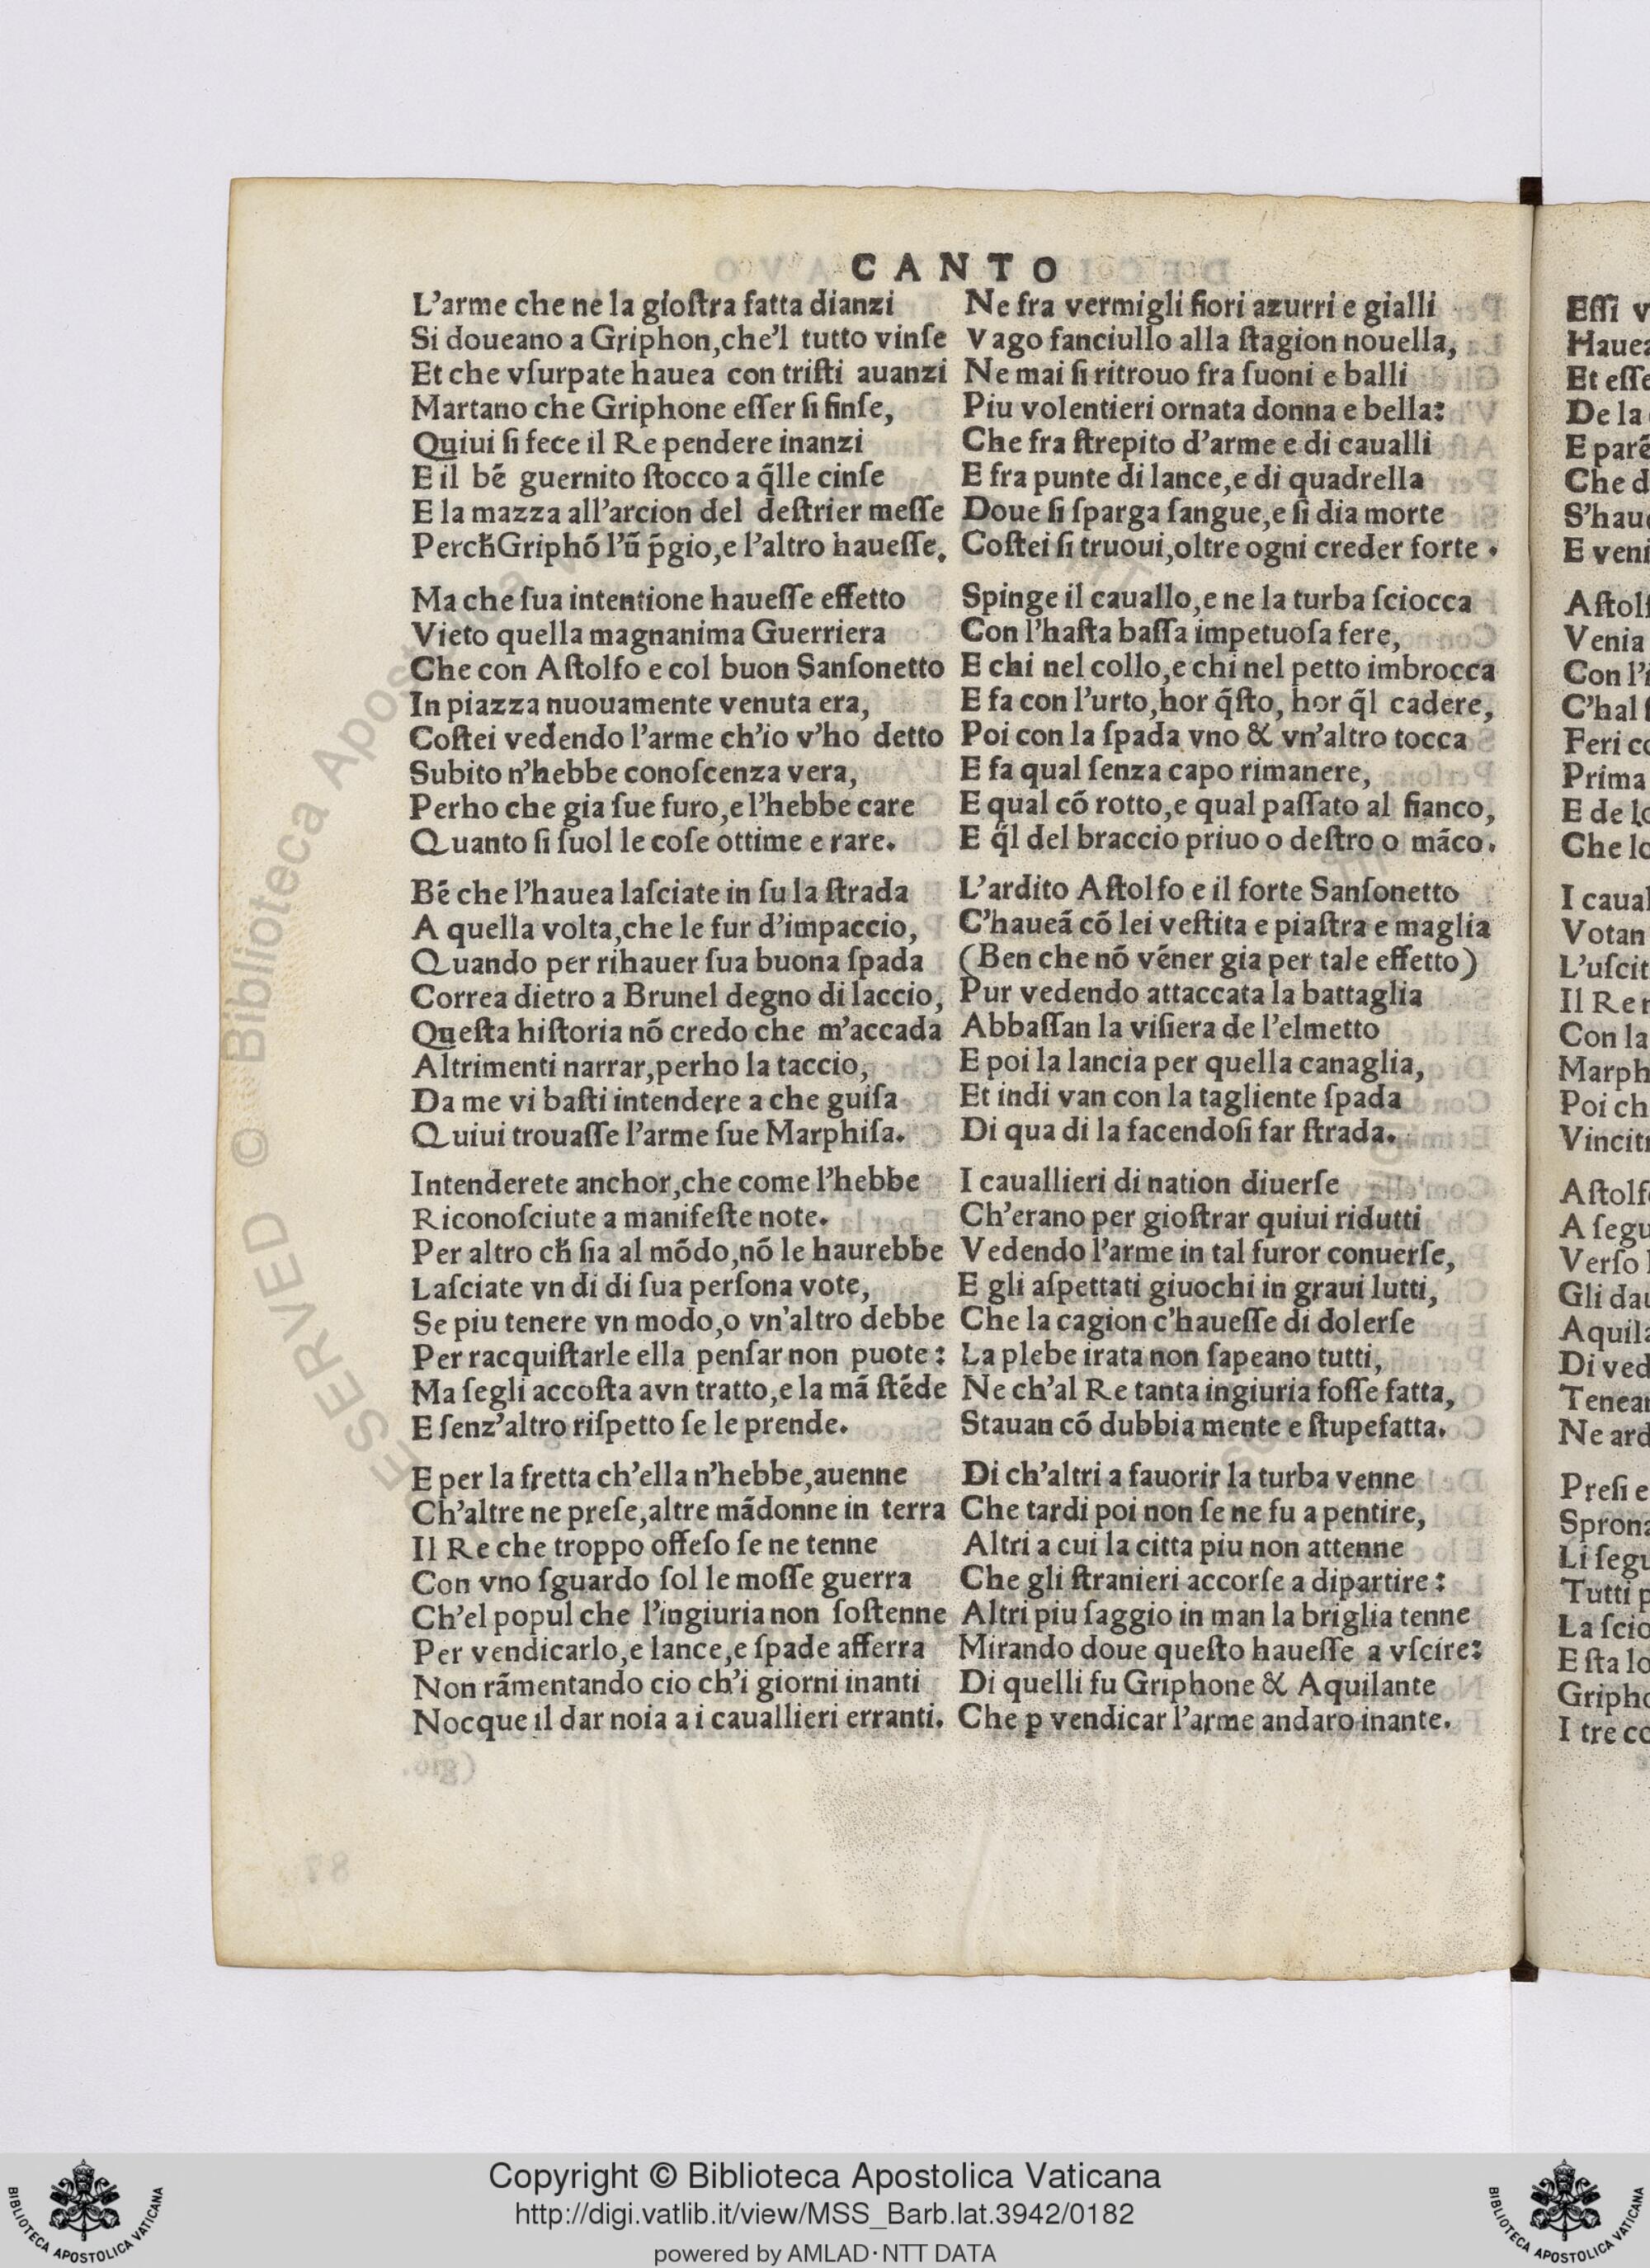 CANTO
L'arme che ne la gioſtra fatta dianzi
Si doueano a Griphon,che'l tutto vinſe
Et che vſurpate hauea con triſti auanzi
Martano che Griphone eſſer ſi finſe,
Quiui ſi fece il Re pendere inanzi
E il bẽ guernito ſtocco a q̃lle cinſe
E la mazza all'arcion del deſtrier meſſe
Perch̃Griphõ l'ũ p̃gio,e l'altro haueſſe.
Ma che ſua intentione haueſſe effetto
Vieto quella magnanima Guerriera
Che con Aſtolfo e col buon Sanſonetto
In piazza nuouamente venuta era,
Coſtei vedendo l'arme ch'io v'ho detto
Subito n'hebbe conoſcenza vera,
Perho che gia ſue furo,e l'hebbe care
Quanto ſi ſuol le coſe ottime e rare.
Bẽ che l'hauea laſciate in ſu la ſtrada
A quella volta,che le fur d'impaccio,
Quando per rihauer ſua buona ſpada
Correa dietro a Brunel degno di laccio,
Queſta hiſtoria nõ credo che m'accada
Altrimenti narrar,perho la taccio,
Da me vi baſti intendere a che guiſa
Quiui trouaſſe l'arme ſue Marphiſa.
Intenderete anchor,che come l'hebbe
Riconoſciute a manifeſte note.
Per altro ch̃ ſia al mõdo,nõ le haurebbe
Laſciate vn di di ſua perſona vote,
Se piu tenere vn modo,o vn'altro debbe
Per racquiſtarle ella penſar non puote:
Ma ſegli accoſta avn tratto,e la mã ſtẽde
E ſenz'altro riſpetto ſe le prende.
E per la fretta ch'ella n'hebbe,auenne
Ch'altre ne preſe,altre mãdonne in terra
Il Re che troppo offeſo ſe ne tenne
Con vno ſguardo ſol le moſſe guerra
Ch'el popul che l'ingiuria non ſoſtenne
Per vendicarlo,e lance,e ſpade afferra
Non rãmentando cio ch'i giorni inanti
Nocque il dar noia a i cauallieri erranti.
Ne fra vermigli fiori azurri e gialli
Vago fanciullo alla ſtagion nouella,
Ne mai ſi ritrouo fra ſuoni e balli
Piu volentieri ornata donna e bella:
Che fra ſtrepito d'arme e di caualli
E fra punte di lance,e di quadrella
Doue ſi ſparga ſangue,e ſi dia morte
Coſtei ſi truoui,oltre ogni creder forte.
Spinge il cauallo,e ne la turba ſciocca
Con l'haſta baſſa impetuoſa fere,
E chi nel collo,e chi nel petto imbrocca
E fa con l'urto,hor q̃ſto, hor q̃l cadere,
Poi con la ſpada vno & vn'altro tocca
E fa qual ſenza capo rimanere,
E qual cõ rotto,e qual paſſato al fianco,
E q̃l del braccio priuo o deſtro o mãco.
L'ardito Aſtolfo e il forte Sanſonetto
C'haueã cõ lei veſtita e piaſtra e maglia
(Ben che nõ vẽner gia per tale effetto)
Pur vedendo attaccata la battaglia
Abbaſſan la viſiera de l'elmetto
E poi la lancia per quella canaglia,
Et indi van con la tagliente ſpada
Di qua di la facendoſi far ſtrada.
I cauallieri di nation diuerſe
Ch'erano per gioſtrar quiui ridutti
Vedendo l'arme in tal furor conuerſe,
E gli aſpettati giuochi in graui lutti,
Che la cagion c'haueſſe di dolerſe
La plebe irata non ſapeano tutti,
Ne ch'al Re tanta ingiuria foſſe fatta,
Stauan cõ dubbia mente e ſtupefatta.
Di ch'altri a fauorir la turba venne
Che tardi poi non ſe ne fu a pentire,
Altri a cui la citta piu non attenne
Che gli ſtranieri accorſe a dipartire:
Altri piu ſaggio in man la briglia tenne
Mirando doue queſto haueſſe a vſcire:
Di quelli fu Griphone & Aquilante
Che ꝑ vendicar l'arme andaro inante.
Eſſi v
Hauea
Et eſſe
De la
E parẽ
Che d
S'hau
E veni
Aſtolf
Venia
Con l'i
C'hal
Feri co
Prima
E de lo
Che lo
I caual
Votan
L'uſcit
Il Re
Con la
Marph
Poi ch
Vincit
Aſtolf
A ſegu
Verſo
Gli dau
Aquila
Di ved
Tenea
Ne ard
Preſi e
Sprona
Li ſegu
Tutti p
La ſcio
E ſta lo
Gripho
I tre co
ESERVED © Biblioteca Apost
Copyright © Biblioteca Apostolica Vaticana
http://digi.vatlib.it/view/MSS_Barb.lat.3942/0182
powered by AMLAD·NTT DATA
BIBLIOTECA APOSTOLICA VATICANA
BIBLIOTECA APOSTOLICA VATICANA